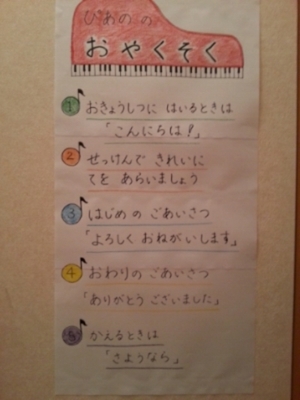 ぴあの の
おやくそく
1 おきょうしつに はいるときは
「こんにちは?」
2 せっけんで きれいに
てを あらいましょう
3 はじめの ごあいさつ
「よろしく おねがいします」
4 おわりの ごあいさつ
「ありがとう ございました」
5 かえるときは
「さようなら」